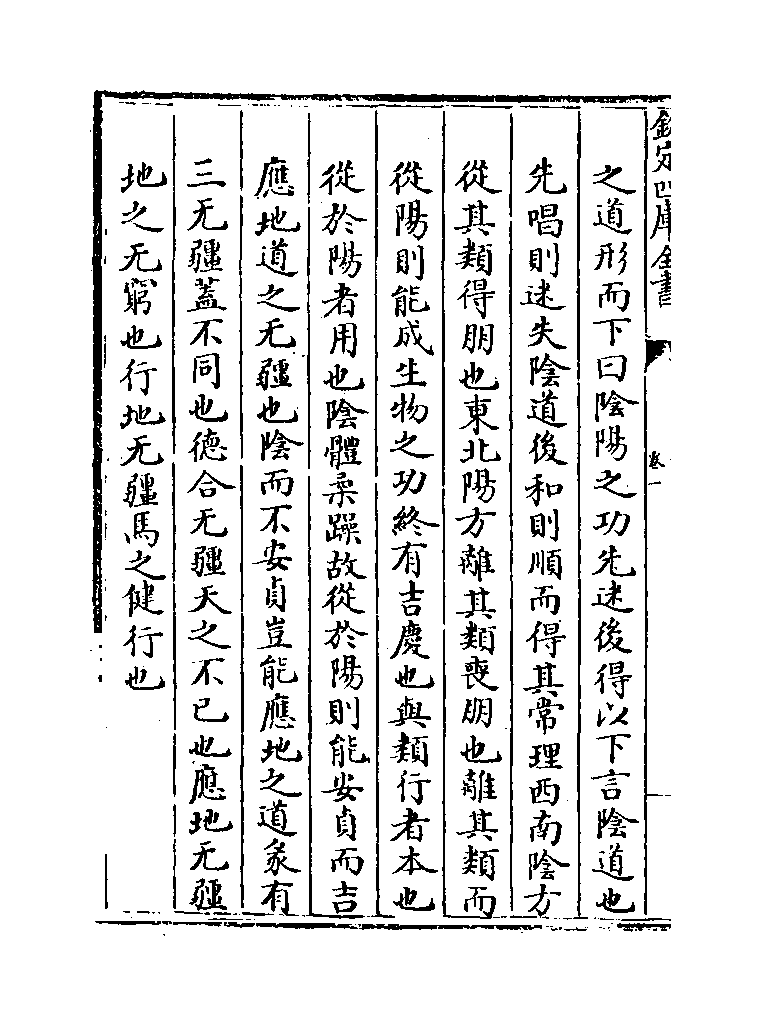 欽定四庫全書
卷一
之道形而下曰陰陽之功先迷後得以下言陰道也
先唱則迷失陰道後和則順而得其常理西南陰方
從其類得朋也東北陽方離其類喪朋也離其類而
從陽則能成生物之功終有吉慶也與類行者本也
從於陽者用也陰體柔躁故從於陽則能安貞而吉
應地道之无疆也陰而不安貞豈能應地之道彖有
三无疆蓋不同也德合无疆天之不已也應地无疆
地之无窮也行地无疆馬之健行也